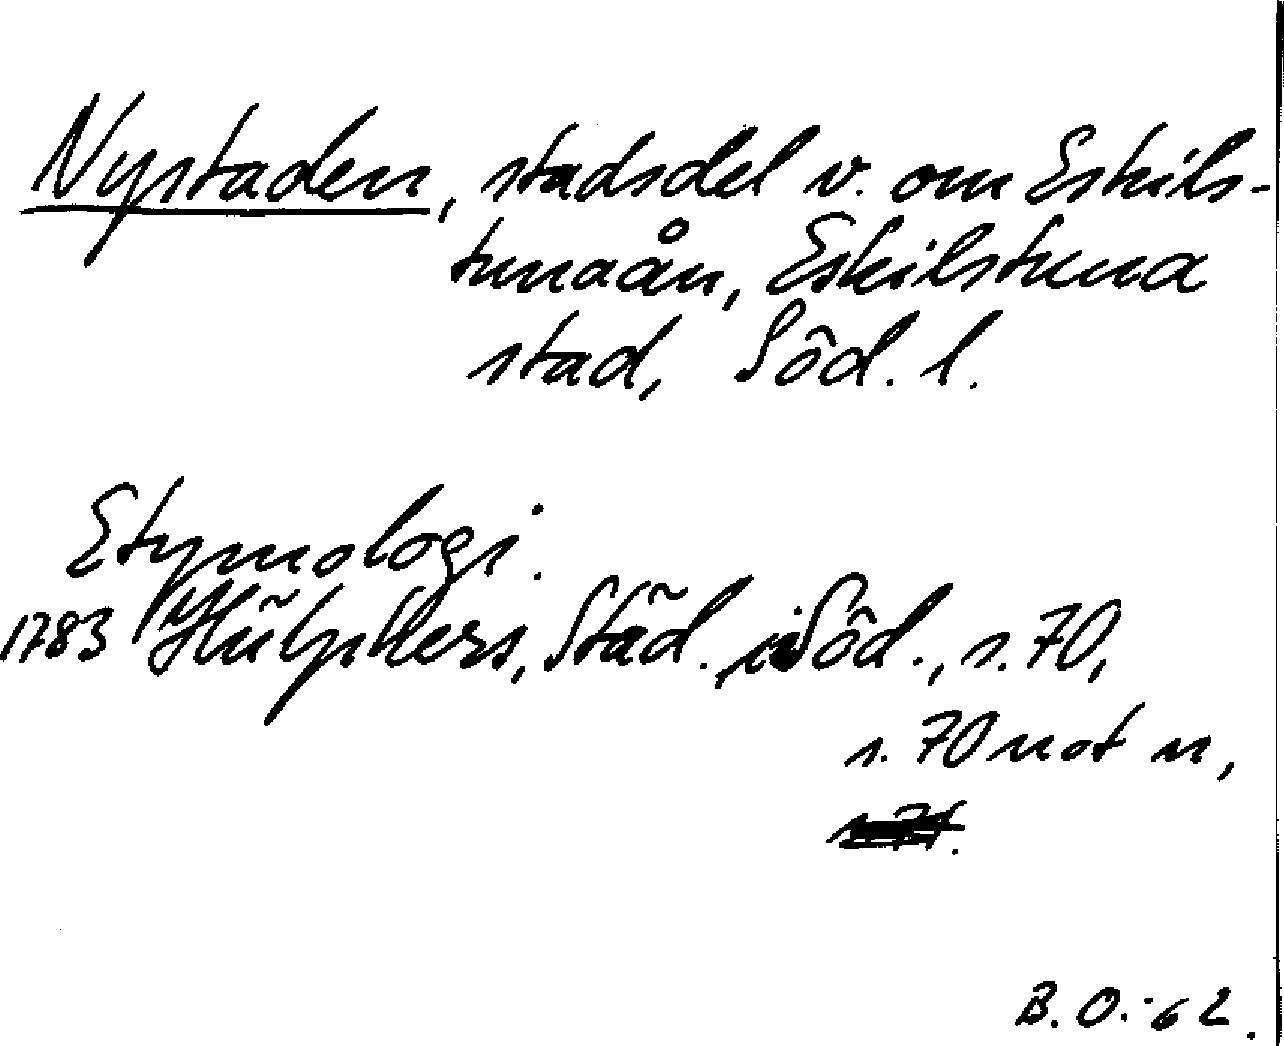 Nystaden, stadsdel v. om Eskils-
tunaån, Eskilstuna
stad, Söd. l.
Etymologi:
1783 Hülphers, Städ. i Söd., s. 70,
s. 70 not n,
B. O. -62.